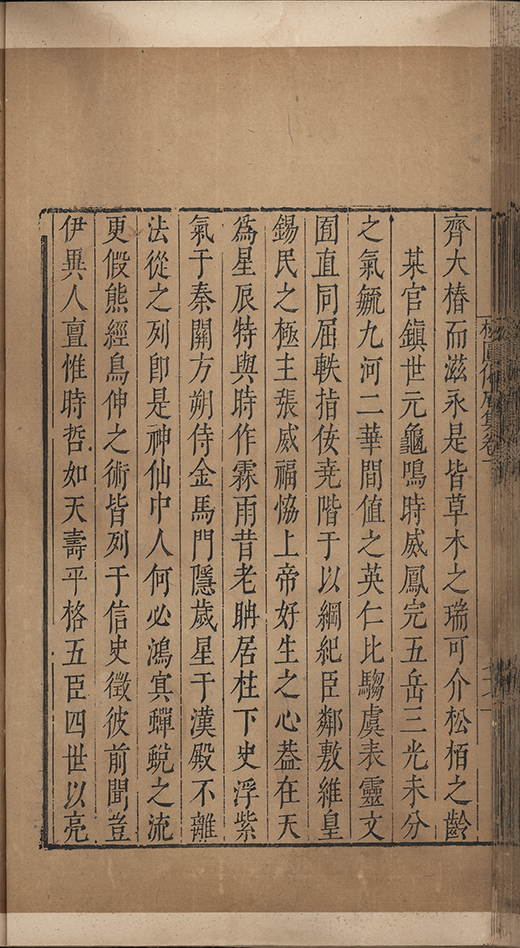 齊大椿而滋永是皆草木之瑞可介松栢之齡
某官鎮世元龜鳴時威鳳完五岳三光未分
之氣毓九河二華間值之英仁比騶虞表靈文
囿直同屈軼指佞堯階于以綱紀臣鄰敷維皇
錫民之極主張威福恊上帝好生之心葢在天
為星辰特與時作霖雨昔老聃居柱下史浮紫
氣于秦關方朔侍金馬門隱歲星于漢殿不離
法從之列卽是神仙中人何必鴻寘蟬蛻之流
更假熊經鳥伸之術皆列于信史徵彼前聞豈
伊異人亶惟時哲如天壽平格五臣四世以亮